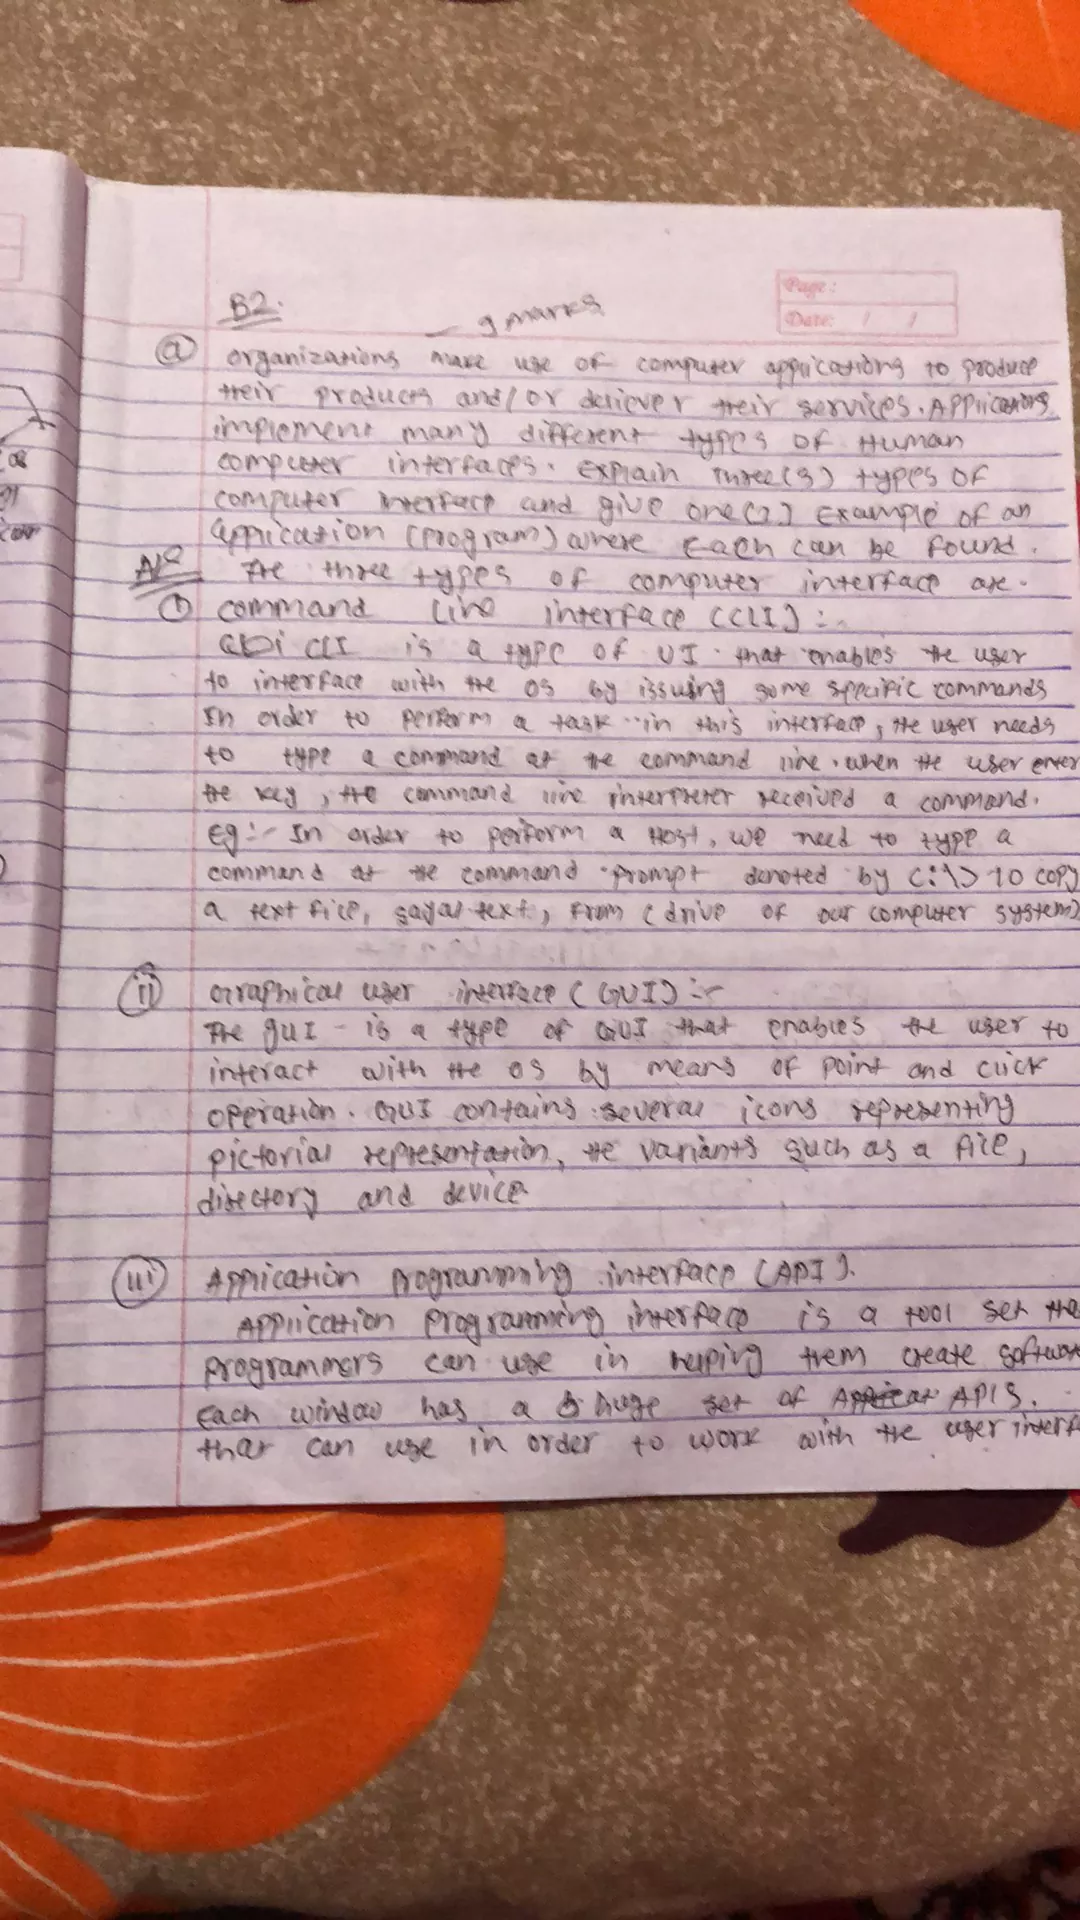 Page:
Date: / /
B2.
9 marks
a organizations make use of computer applications to produce
their products and/or deliever their services. Applications
implement many different types of Human
computer interfaces. Explain Three(3) types of
computer interface and give one(1) Example of an
application (program) where Each can be found.
The three types of computer interface are.
i command Line interface (CLI) :-
CLI is a type of UI that enables the user
to interface with the OS by issuing some specific commands
In order to perform a task in this interface, the user needs
to type a command at the command line. when the user enter
the key, the command line interpreter received a command.
Eg:- In order to perform a Host, we need to type a
command at the command prompt denoted by C:\> To copy
a text file, text, From (drive of our computer system)
ii Graphical user interface (GUI) :-
The GUI - is a type of GUI that enables the user to
interact with the OS by means of point and click
operation. GUI contains several icons representing
pictorial representation, the variants such as a file,
directory and device
iii Application programming interface (API).
Application programming interface is a tool set the
programmers can use in helping them create software
Each window has a huge set of APIS.
that can use in order to work with the user interfa